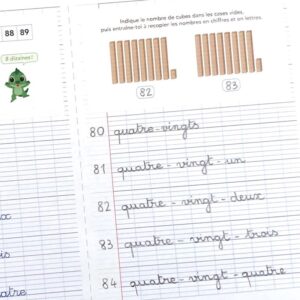 88 89
8 dizaines !
Indique le nombre de cubes dans les cases vides,
puis entraîne-toi à recopier les nombres en chiffres et en lettres.
82 83
80 quatre-vingts
81 quatre - vingt - un
82 quatre - vingt - deux
83 quatre - vingt - trois
84 quatre - vingt - quatre